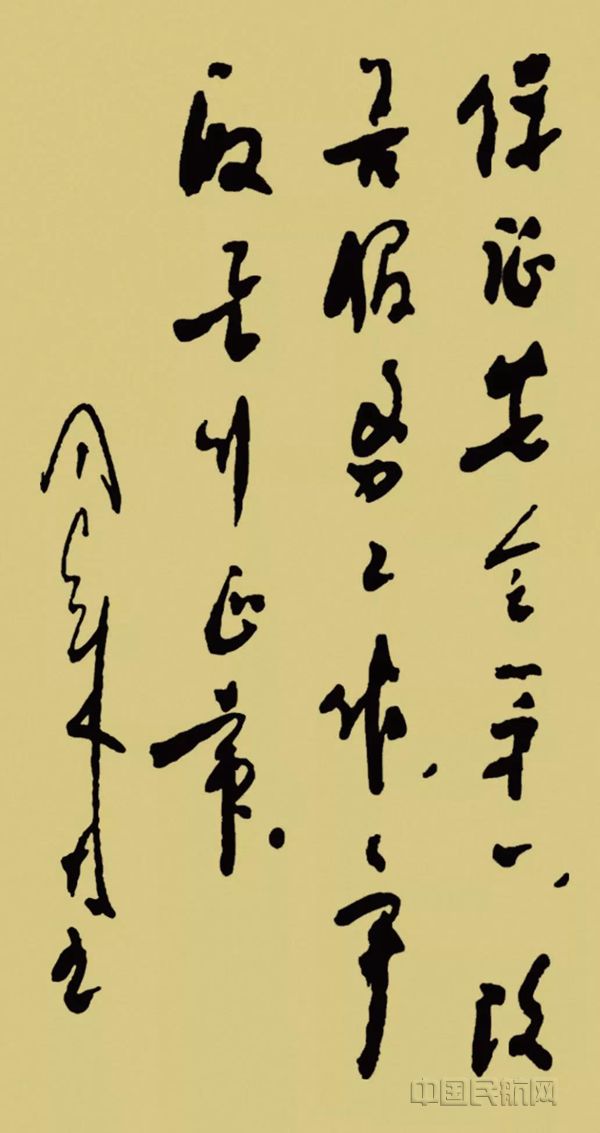 保证安全第一，改
善服务工作，争
取飞行正常。
周恩来
中国民航网